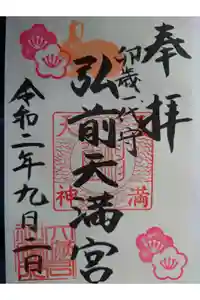 奉拝
卯歳一代守
弘前天満宮
令和二年九月二日
天満
神